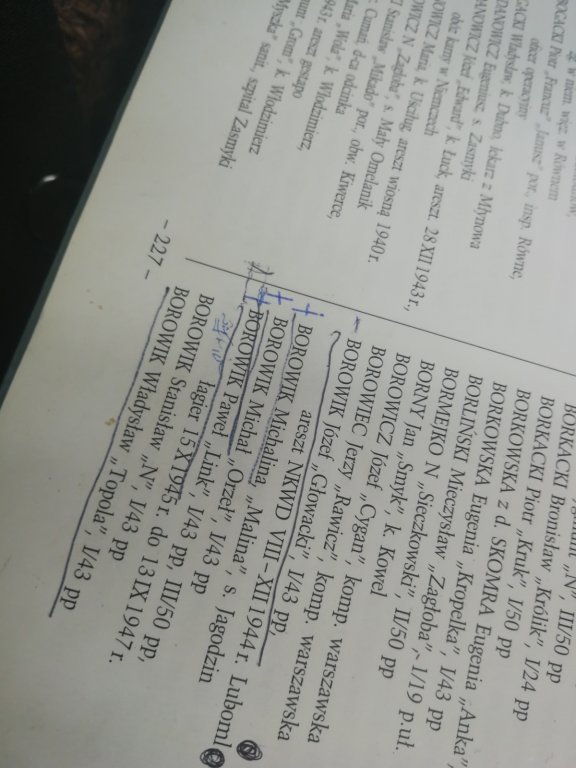 w nem. więz. w Równem
Piotr „Francuz” „Janusz” por., insp. Równe,
oficer operacyjny
Władysław, k. Dubno, lekarz z Młynowa
Eugeniusz, s. Zasmyki
Józef „Edward”, k. Łuck, areszt. 28 XII 1943 r.,
obóz karny w Niemczech
Maria, k. Uściług, areszt wiosną 1940 r.
N „Zagłoba”, s. Mały Omelanik
Stanisław „Mikado” por., obw. Kiwerce,
Cumań, d-ca odcinka
„Wola”, k. Włodzimierz,
areszt gestapo
„Grom”, k. Włodzimierz
sanit., szpital Zasmyki
„N”, III/50 pp
BORKACKI Bronisław „Królik”, I/24 pp
BORKACKI Piotr „Kruk”, I/50 pp
BORKOWSKA z d. SKOMRA Eugenia „Anka”,
BORKOWSKA Eugenia „Kropelka”, I/43 pp
BORLIŃSKI Mieczysław „Zagłoba”, I/19 p.uł.
BORMEJKO N „Sieczkowski”, II/50 pp
BORNY Jan „Smyk”, k. Kowel
BOROWICZ Józef „Cygan”, komp. warszawska
BOROWIEC Jerzy „Rawicz”, komp. warszawska
BOROWIK Józef „Głowacki”, I/43 pp,
areszt NKWD VIII-XII 1944 r. Luboml
BOROWIK Michalina „Malina”, s. Jagodzin
BOROWIK Michał „Orzeł”, I/43 pp
BOROWIK Paweł „Link”, I/43 pp, III/50 pp,
łagier 15 X 1945 r. do 13 IX 1947 r.
BOROWIK Stanisław „N”, I/43 pp
BOROWIK Władysław „Topola”, I/43 pp
- 227 -